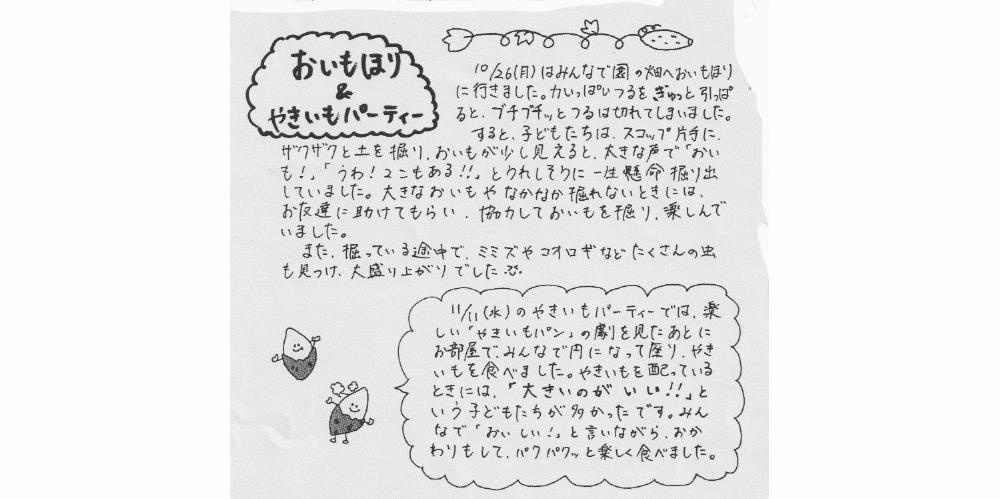 おいもほり
&
やきいもパーティー
10/26(月)はみんなで園の畑へおいもほり
に行きました。力いっぱいつるをぎゅっと引っぱ
ると、ブチブチッとつるは切れてしまいました。
すると、子どもたちは、スコップ片手に、
ザクザクと土を掘り、おいもが少し見えると、大きな声で「おい
も!」「うわ!2こもある!!」とうれしそうに一生懸命掘り出
していました。大きなおいもやなかなか掘れないときには、
お友達に助けてもらい、協力しておいもを掘り、楽しんで
いました。
また、掘っている途中で、ミミズやコオロギなどたくさんの虫
も見つけ、大盛り上がりでした
11/11(水)のやきいもパーティーでは、楽
しい「やきいもパン」の劇を見たあとに
お部屋で、みんなで円になって座り、やき
いもを食べました。やきいもを配っている
ときには、「大きいのがいい!!」と
いう子どもたちが多かったです。みん
なで「おいしい!」と言いながら、おか
わりもして、パクパクッと楽しく食べました。